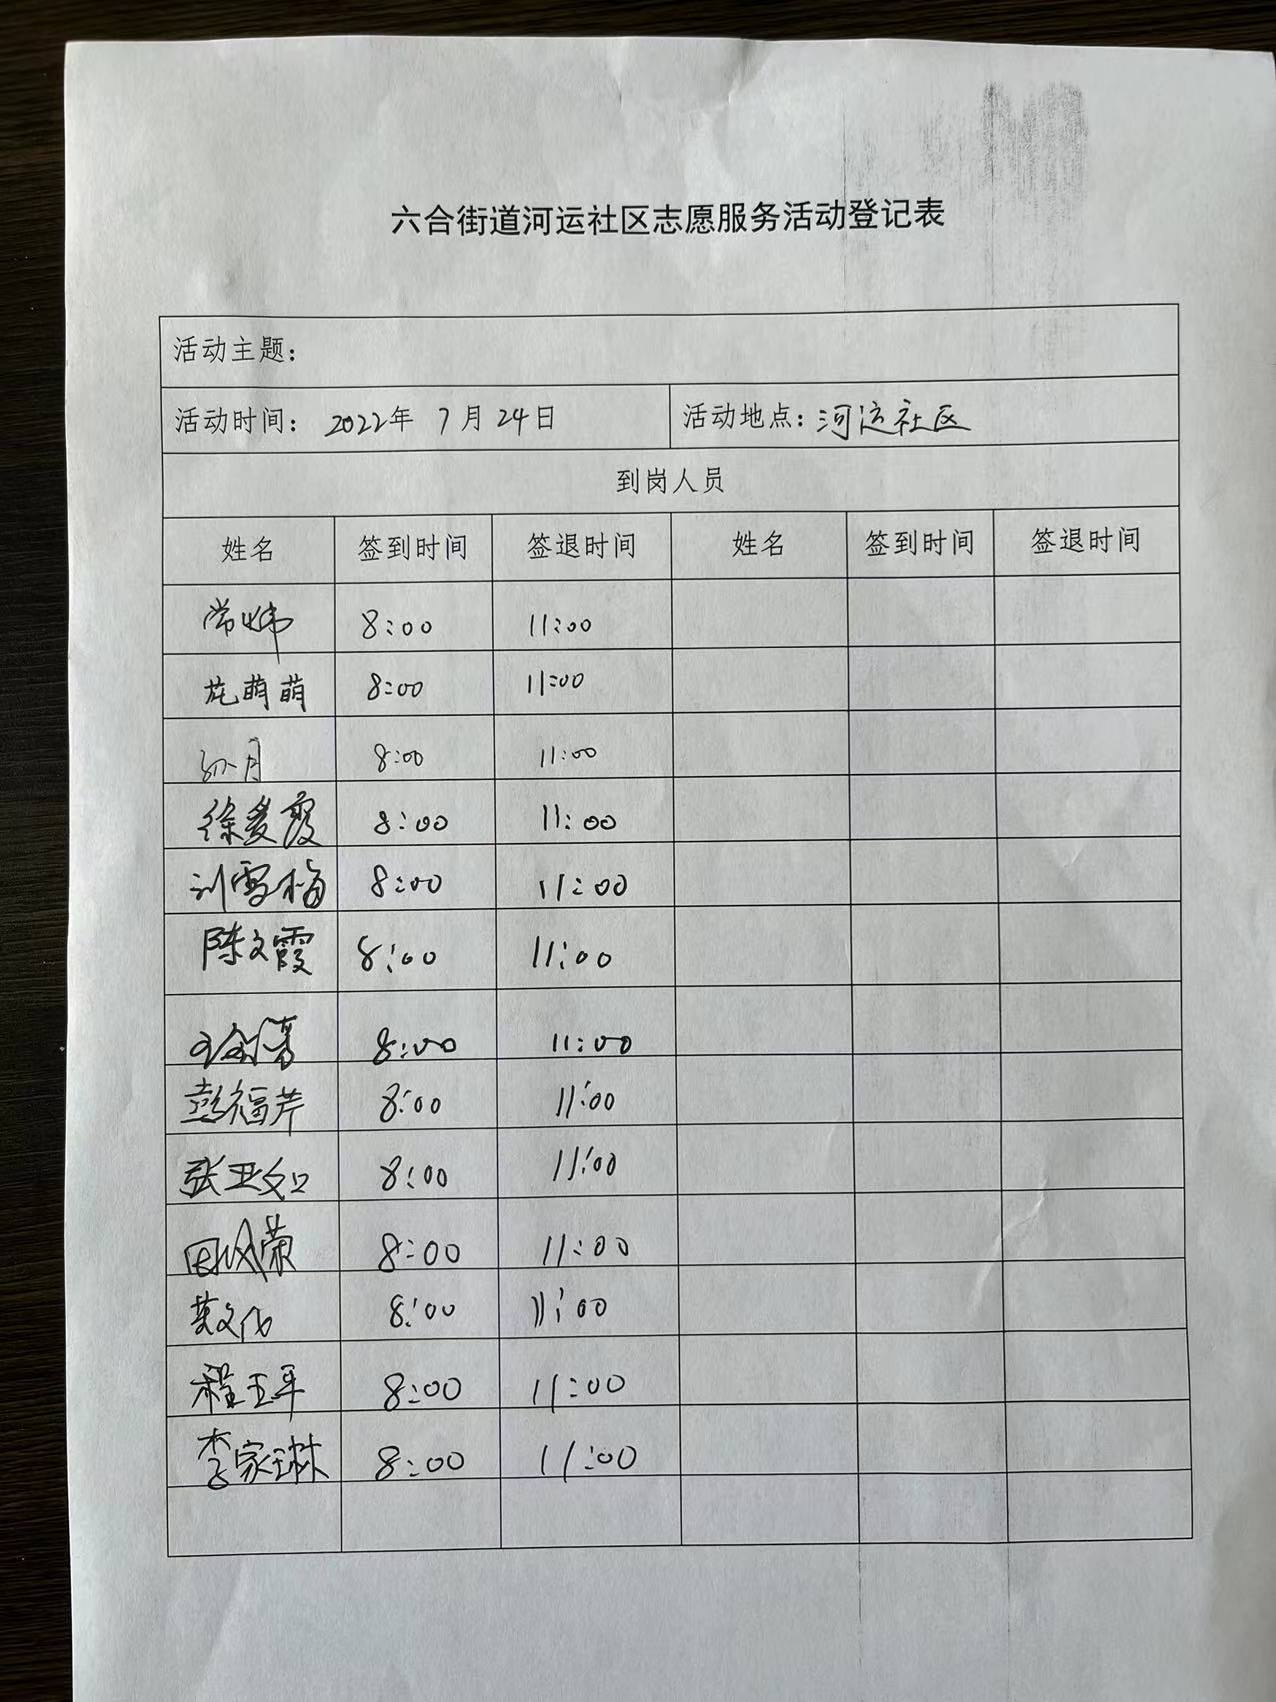 六合街道河运社区志愿服务活动登记表
活动主题：
活动时间： 2022年 7月 24日 活动地点：河运社区
到岗人员
姓名 签到时间 签退时间 姓名 签到时间 签退时间
常炜 8:00 11:00
庞萌萌 8:00 11:00
孙月 8:00 11:00
徐爱霞 8:00 11:00
刘雪梅 8:00 11:00
陈文霞 8:00 11:00
8:00 11:00
彭福芹 8:00 11:00
张亚如 8:00 11:00
田 荣 8:00 11:00
文 8:00 11:00
程玉平 8:00 11:00
李家琳 8:00 11:00